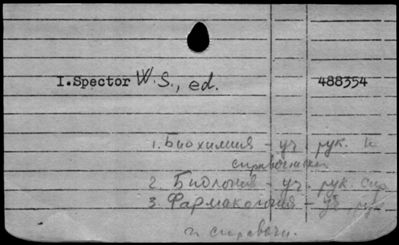 I.Spector W.S., ed. 488354
1. Биохимия - уч. рук. и
справочники
2. Биология - уч. рук. спр.
3. Фармакология - уч. рук.
и справочн.